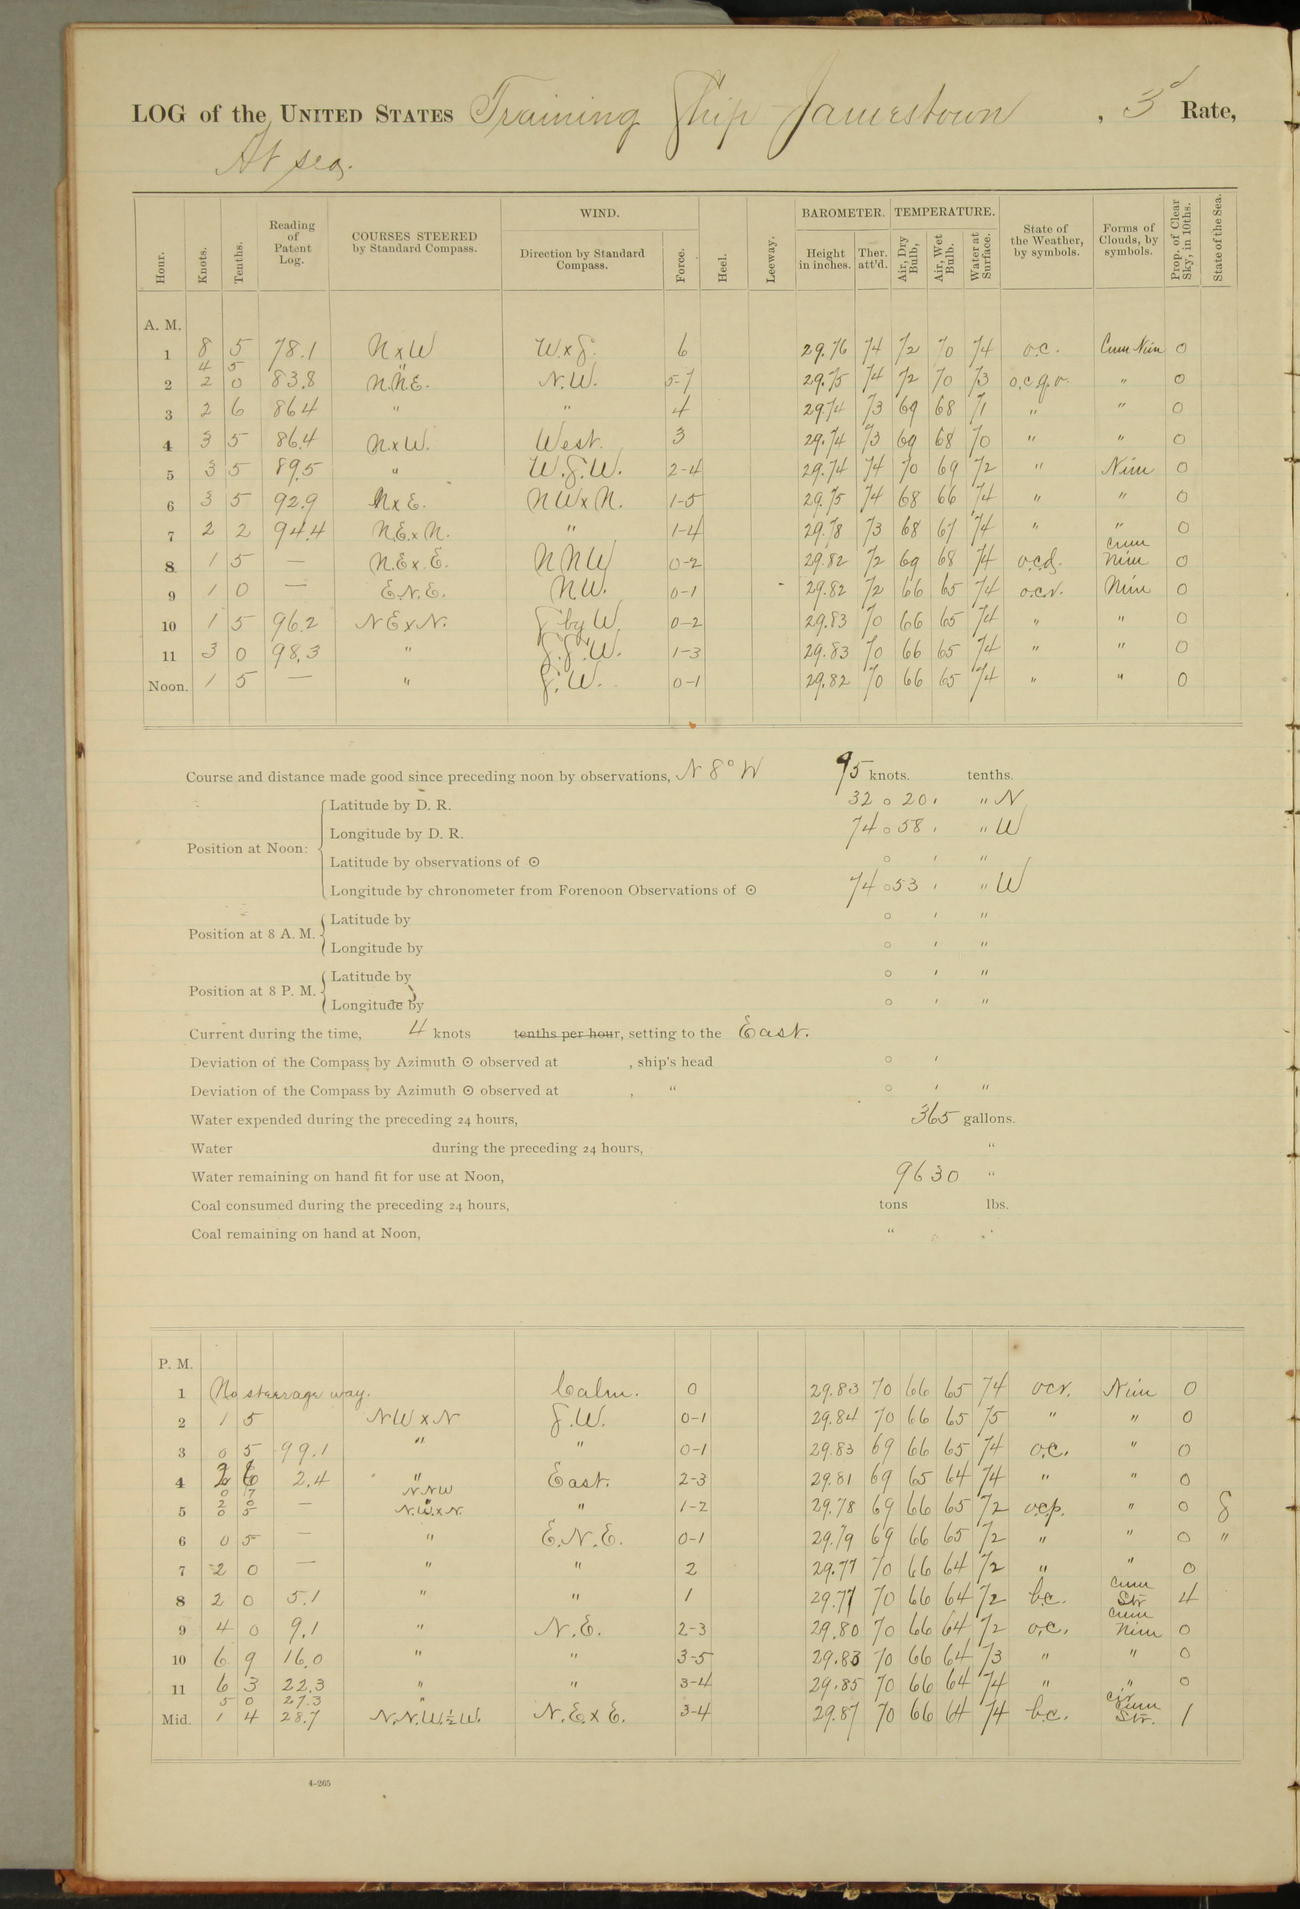 LOG of the UNITED STATES Training Ship Jamestown, 3d Rate,
At sea.
Hour. Knots. Tenths. Reading of Patent Log. COURSES STEERED by Standard Compass. WIND. Direction by Standard Compass. Force. Heel. Leeway. BAROMETER. Height in inches. Ther. att'd. TEMPERATURE. Air, Dry Bulb, Air, Wet Bulb. Water at Surface. State of the Weather, by symbols. Forms of Clouds, by symbols. Prop. of Clear Sky, in 10ths. State of the Sea.
A. M.
1 8 5 78.1 N x W W x S. 6 29.76 74 72 70 74 o.c. Cum Nim 0
4 5 "
2 2 0 83.8 N.N.E. N.W. 5-7 29.75 74 72 70 73 o.c.q.r. " 0
3 2 6 86.4 " " 4 29.74 73 69 68 71 " " 0
4 3 5 86.4 N x W. West. 3 29.74 73 69 68 70 " " 0
5 3 5 89.5 " W.S.W. 2-4 29.74 74 70 69 72 " Nim 0
6 3 5 92.9 N x E. NW x N. 1-5 29.75 74 68 66 74 " " 0
7 2 2 94.4 N.E. x N. " 1-4 29.78 73 68 67 74 " " 0
8 1 5 — N.E x. E. NNW 0-2 29.82 72 69 68 74 o.c.d. Cum Nim 0
9 1 0 — E.N.E. NW. 0-1 29.82 72 66 65 74 o.c.r. Nim 0
10 1 5 96.2 NE x N. S by W. 0-2 29.83 70 66 65 74 " " 0
11 3 0 98.3 " S.S.W. 1-3 29.83 70 66 65 74 " " 0
Noon. 1 5 — " S.W. 0-1 29.82 70 66 65 74 " " 0
Course and distance made good since preceding noon by observations, N 8° W 95 knots. tenths.
Position at Noon:
Latitude by D. R. 32 ° 20 ' " N
Longitude by D. R. 74 ° 58 ' " W
Latitude by observations of ☉ ° ' "
Longitude by chronometer from Forenoon Observations of ☉ 74 ° 53 ' " W
Position at 8 A. M.
Latitude by ° ' "
Longitude by ° ' "
Position at 8 P. M.
Latitude by ° ' "
Longitude by ° ' "
Current during the time, 4 knots tenths per hour, setting to the East.
Deviation of the Compass by Azimuth ☉ observed at , ship's head ° '
Deviation of the Compass by Azimuth ☉ observed at , " ° ' "
Water expended during the preceding 24 hours, 365 gallons.
Water during the preceding 24 hours, "
Water remaining on hand fit for use at Noon, 9630 "
Coal consumed during the preceding 24 hours, tons lbs.
Coal remaining on hand at Noon, " "
P. M.
1 No steerage way. Calm. 0 29.83 70 66 65 74 ocr. Nim 0
2 1 5 NW x N S.W. 0-1 29.84 70 66 65 75 " " 0
3 0 5 99.1 " " 0-1 29.83 69 66 65 74 o.c. " 0
4 2 6 2.4 " East. 2-3 29.81 69 65 64 74 " " 0
0 7 NNW
2 0 "
5 0 5 — N.W. x N. " 1-2 29.78 69 66 65 72 o.c.p. " 0 S
6 0 5 — " E.N.E. 0-1 29.79 69 66 65 72 " " 0 "
7 2 0 — " " 2 29.77 70 66 64 72 " " 0
8 2 0 5.1 " " 1 29.77 70 66 64 72 b.c. Cum Str 4
9 4 0 9.1 " N.E. 2-3 29.80 70 66 64 72 o.c. Cum Nim 0
10 6 9 16.0 " " 3-5 29.83 70 66 64 73 " " 0
11 6 3 22.3 " " 3-4 29.85 70 66 64 74 " " 0
5 0 27.3 "
Mid. 1 4 28.7 N.N.W.½W. N.E. x E. 3-4 29.87 70 66 64 74 b.c. Cir Cum Str. 1
4-265